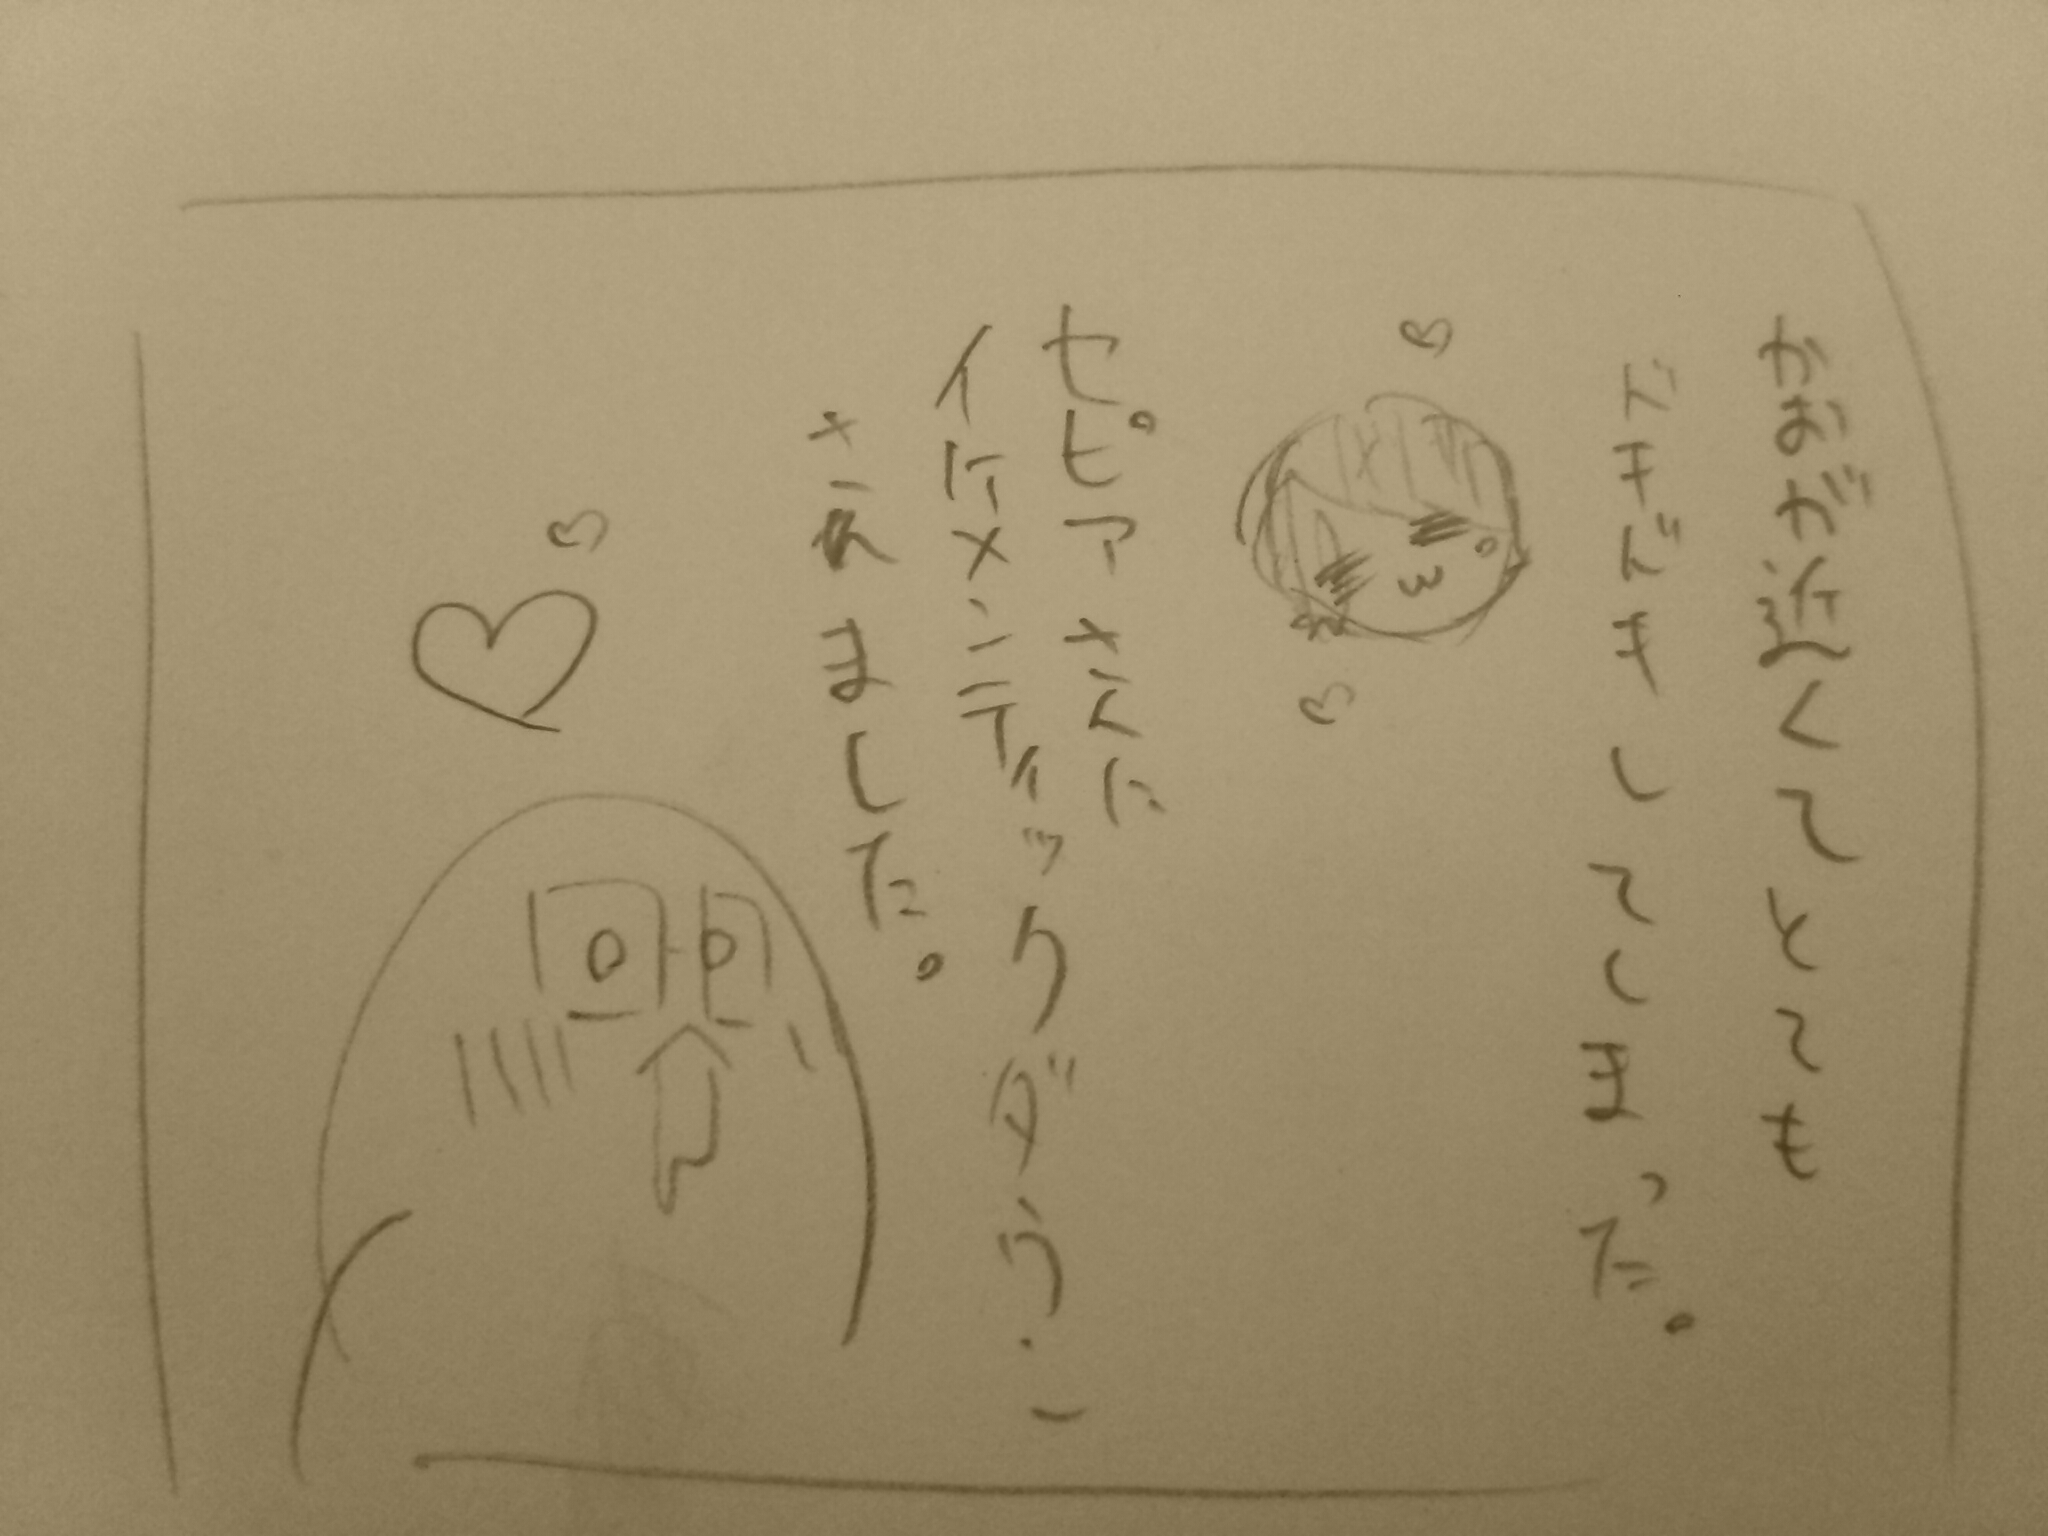 かおが近くてとても
ドキドキしてしまった。
セピアさんに
イケメンデックダウ
されました。